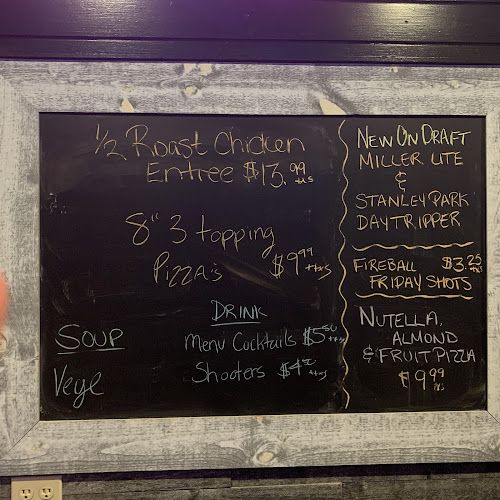 1/2 Roast Chicken
Entree $13.99
8" 3 topping
Pizza's $9.99
DRINK
Menu Cocktails $5.50
Shooters
SOUP
Vege
NEW ON DRAFT
MILLER LITE
&
STANLEY PARK
DAYTRIPPER
FIREBALL $3.25
FRIDAY SHOTS
NUTELLA,
ALMOND
& FRUIT PIZZA
$9.99